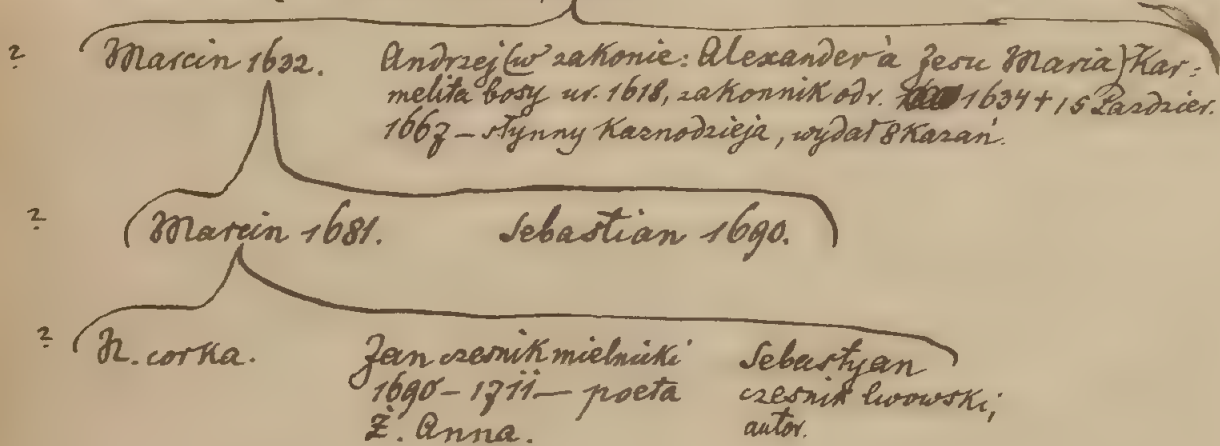 ? Marcin 1632. Andrzej (w zakonie: Alexander à Jesu Maria) Kar=
melita bosy ur. 1618, zakonnik odr. 1634 + 15 Pazdzier.
1667 – słynny Kaznodzieja, wydał 8 Kazań.
? Marcin 1681. Sebastian 1690.
? N. corka. Jan czesnik mielnicki Sebastyan
1690 – 1711 — poeta czesnik lwowski,
Ż. Anna. autor.